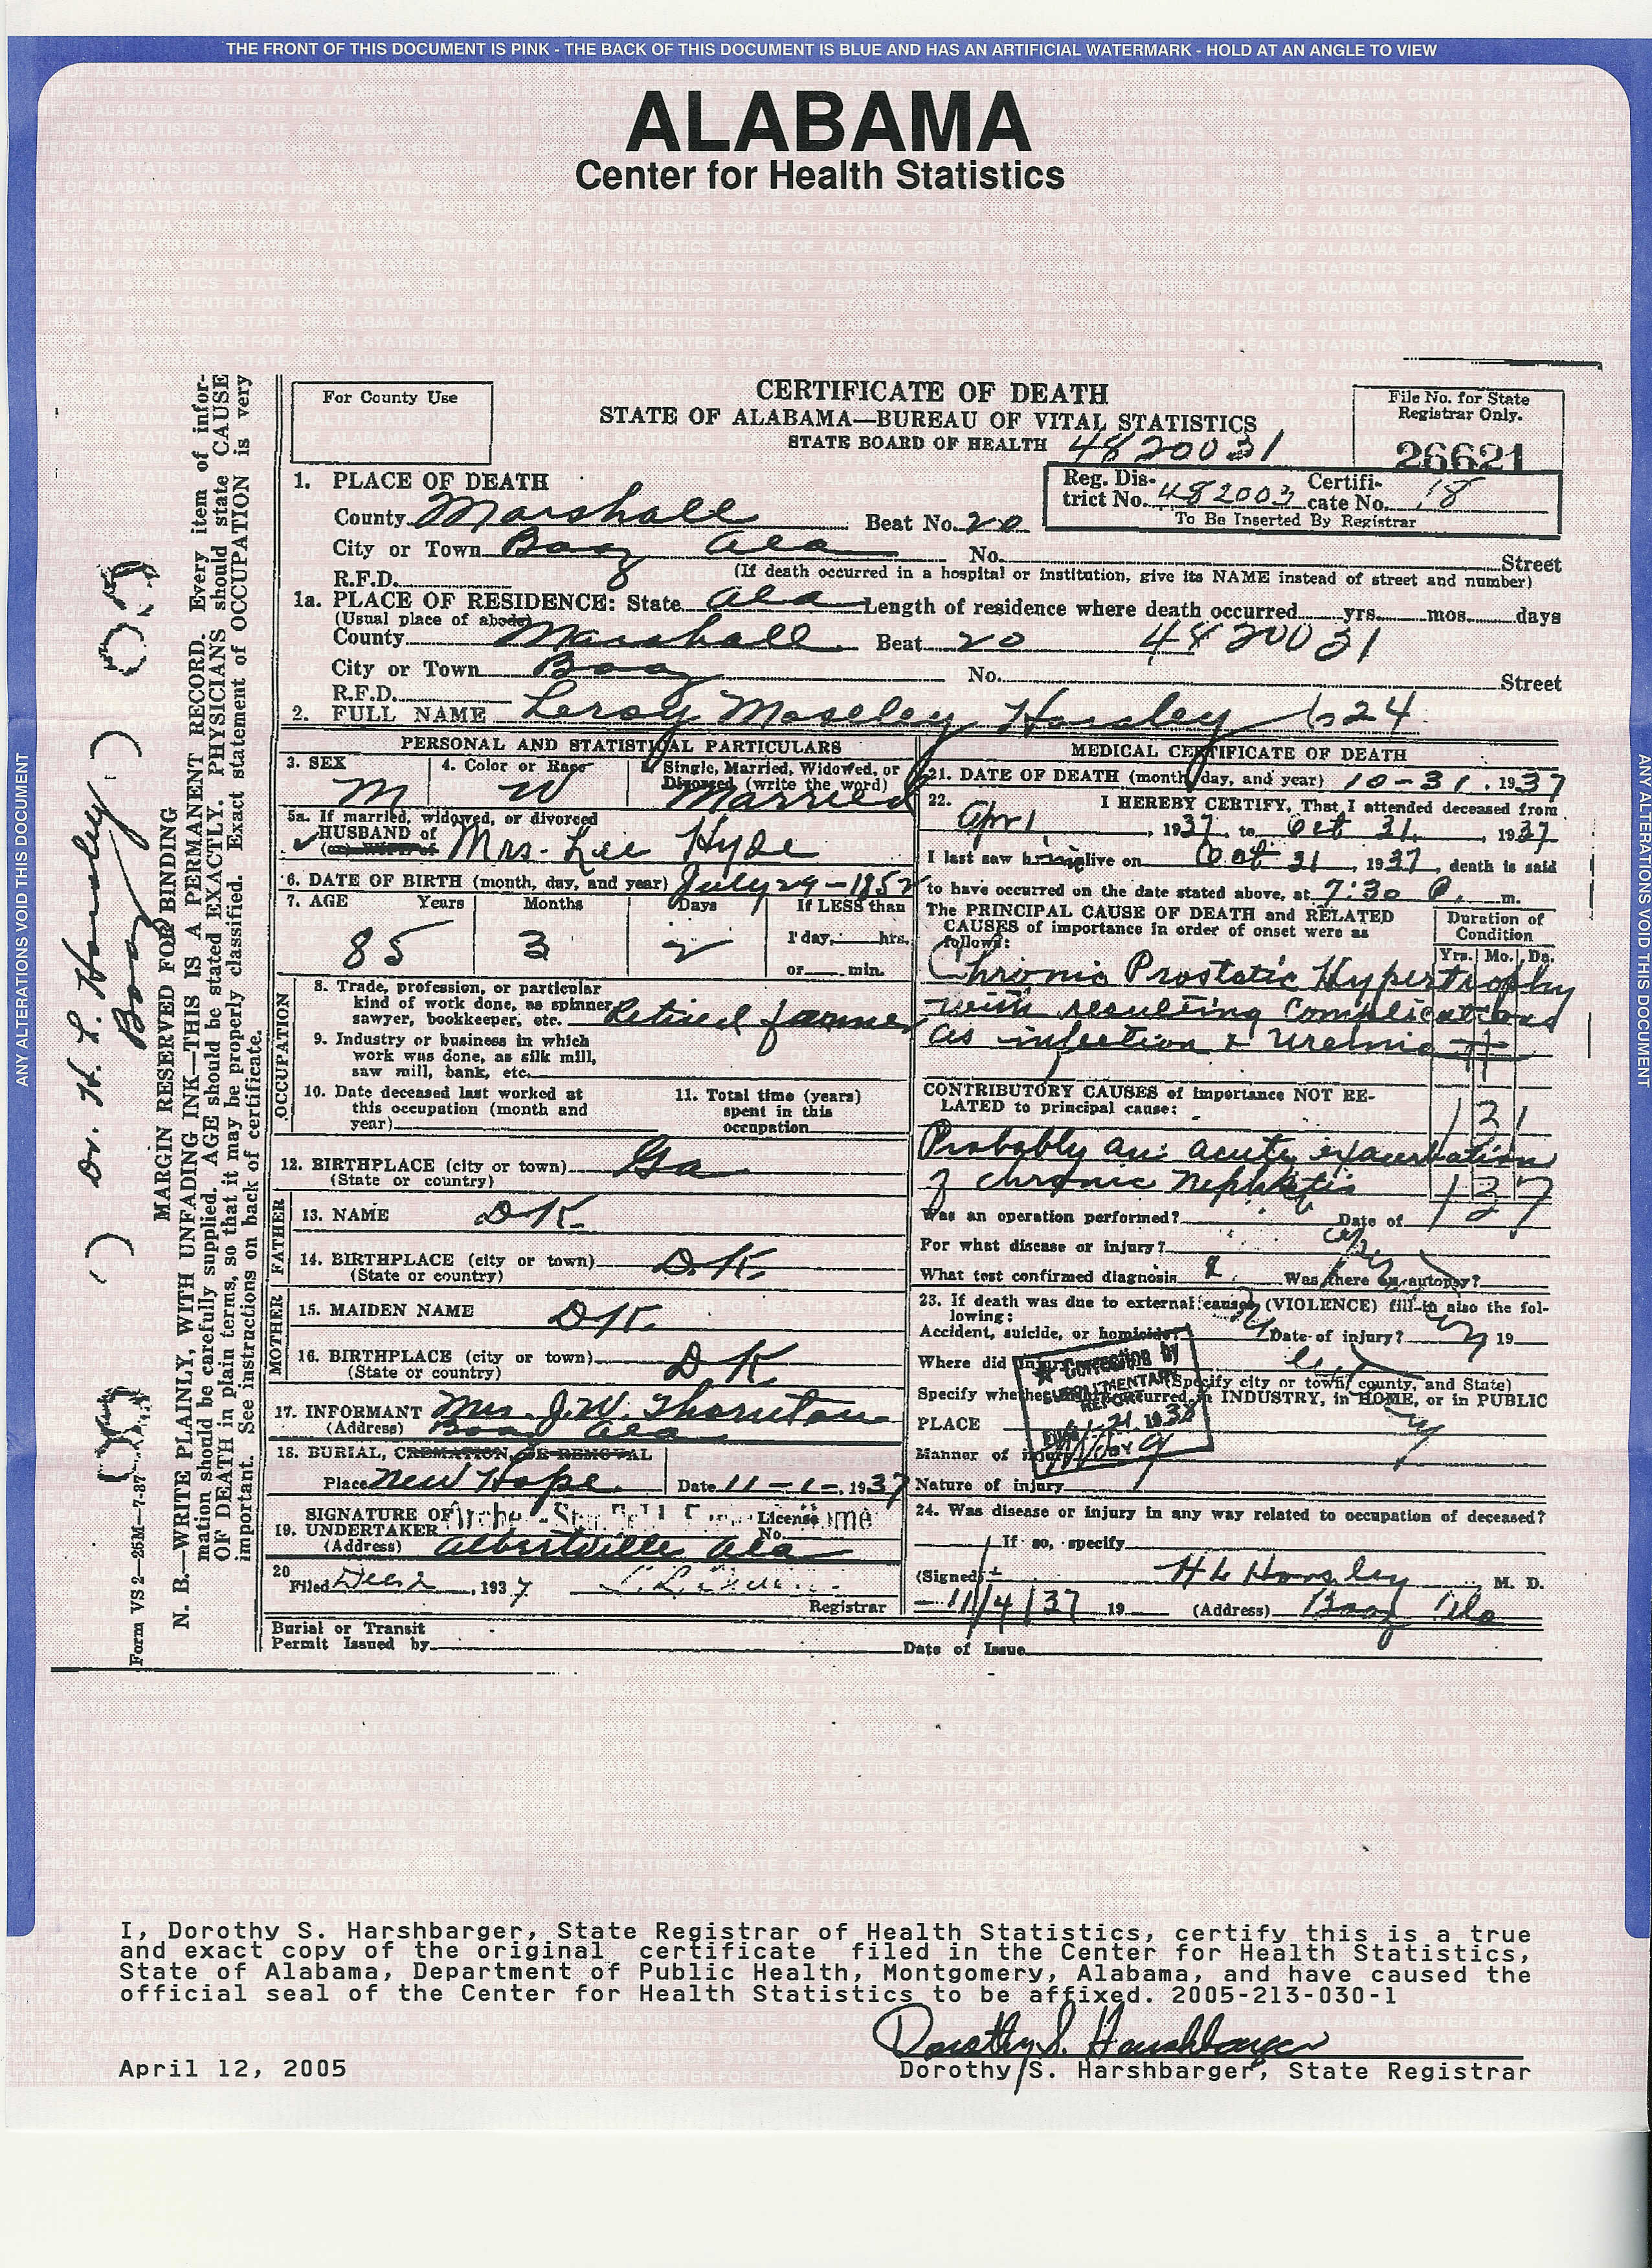 THE FRONT OF THIS DOCUMENT IS PINK - THE BACK OF THIS DOCUMENT IS BLUE AND HAS AN ARTIFICIAL WATERMARK - HOLD AT AN ANGLE TO VIEW
ALABAMA
Center for Health Statistics
For County Use
CERTIFICATE OF DEATH
STATE OF ALABAMA—BUREAU OF VITAL STATISTICS
STATE BOARD OF HEALTH 4820031
File No. for State
Registrar Only.
26621
Reg. District No. 482003 Certificate No. 18
To Be Inserted By Registrar
1. PLACE OF DEATH
County Marshall Beat No. 20
City or Town Boaz Ala No. Street
R.F.D. (If death occurred in a hospital or institution, give its NAME instead of street and number)
1a. PLACE OF RESIDENCE: State Ala Length of residence where death occurred yrs. mos. days
(Usual place of abode)
County Marshall Beat 20 4820031
City or Town Boaz No. Street
R.F.D.
2. FULL NAME Leroy Moseley Horsley 624
PERSONAL AND STATISTICAL PARTICULARS
3. SEX M
4. Color or Race W
5. Single, Married, Widowed, or Divorced (write the word) Married
5a. If married, widowed, or divorced
HUSBAND of
(or) WIFE of Mrs. Lee Hyde
6. DATE OF BIRTH (month, day, and year) July 29-1852
7. AGE Years Months Days If LESS than
85 3 2 1 day, hrs.
or min.
OCCUPATION
8. Trade, profession, or particular
kind of work done, as spinner,
sawyer, bookkeeper, etc. Retired farmer
9. Industry or business in which
work was done, as silk mill,
saw mill, bank, etc.
10. Date deceased last worked at
this occupation (month and
year)
11. Total time (years)
spent in this
occupation
12. BIRTHPLACE (city or town) Ga
(State or country)
FATHER
13. NAME DK
14. BIRTHPLACE (city or town) D.K.
(State or country)
MOTHER
15. MAIDEN NAME DK
16. BIRTHPLACE (city or town) DK
(State or country)
17. INFORMANT Mrs. J.W. Thornton
(Address) Boaz Ala
18. BURIAL, CREMATION, OR REMOVAL
Place New Hope Date 11-1-, 1937
SIGNATURE OF License
19. UNDERTAKER No.
(Address) Albertville Ala
20 Filed Dec 2, 1937
Registrar
Burial or Transit
Permit Issued by Date of Issue
MEDICAL CERTIFICATE OF DEATH
21. DATE OF DEATH (month, day, and year) 10-31, 1937
22. I HEREBY CERTIFY, That I attended deceased from
Apr 1, 1937, to Oct 31, 1937
I last saw him alive on Oct 31, 1937, death is said
to have occurred on the date stated above, at 7:30 P. m.
The PRINCIPAL CAUSE OF DEATH and RELATED
CAUSES of importance in order of onset were as
follows:
Duration of
Condition
Yrs. Mo. Da.
Chronic Prostatic Hypertrophy
with resulting Complications
as infection & Uremia
CONTRIBUTORY CAUSES of importance NOT RELATED to principal cause:
131
Probably an acute exacerbation
of chronic nephritis 137
Was an operation performed? Date of
For what disease or injury?
What test confirmed diagnosis Was there an autopsy?
23. If death was due to external causes (VIOLENCE) fill in also the following:
Accident, suicide, or homicide? Date of injury? 19
Where did injury (Specify city or town, county, and State)
Specify whether occurred in INDUSTRY, in HOME, or in PUBLIC
PLACE
Manner of injury
Nature of injury
Correction by
SUPPLIMENTARY
REPORT
24. Was disease or injury in any way related to occupation of deceased?
If so, specify
(Signed) H L Horsley M. D.
11/4/37 19 (Address) Boaz Ala
Dr. H. L. Horsley
Boaz
MARGIN RESERVED FOR BINDING
N. B.—WRITE PLAINLY, WITH UNFADING INK—THIS IS A PERMANENT RECORD. Every item of information should be carefully supplied. AGE should be stated EXACTLY. PHYSICIANS should state CAUSE OF DEATH in plain terms, so that it may be properly classified. Exact statement of OCCUPATION is very important. See instructions on back of certificate.
Form VS 2—25M—7-37
ANY ALTERATIONS VOID THIS DOCUMENT
ANY ALTERATIONS VOID THIS DOCUMENT
I, Dorothy S. Harshbarger, State Registrar of Health Statistics, certify this is a true
and exact copy of the original certificate filed in the Center for Health Statistics,
State of Alabama, Department of Public Health, Montgomery, Alabama, and have caused the
official seal of the Center for Health Statistics to be affixed. 2005-213-030-1
Dorothy S. Harshbarger
April 12, 2005
Dorothy S. Harshbarger, State Registrar